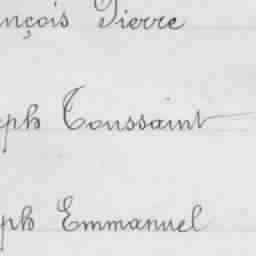 nçois Pierre
eph Toussaint
ph Emmanuel